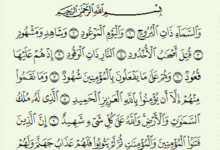 بِسْمِ اللَّهِ الرَّحْمَٰنِ الرَّحِيمِ
وَالسَّمَاءِ ذَاتِ الْبُرُوجِ ۝ وَالْيَوْمِ الْمَوْعُودِ ۝ وَشَاهِدٍ وَمَشْهُودٍ
۝ قُتِلَ أَصْحَابُ الْأُخْدُودِ ۝ النَّارِ ذَاتِ الْوَقُودِ ۝ إِذْ هُمْ عَلَيْهَا
قُعُودٌ ۝ وَهُمْ عَلَىٰ مَا يَفْعَلُونَ بِالْمُؤْمِنِينَ شُهُودٌ ۝ وَمَا نَقَمُوا
مِنْهُمْ إِلَّا أَن يُؤْمِنُوا بِاللَّهِ الْعَزِيزِ الْحَمِيدِ ۝ الَّذِي لَهُ مُلْكُ
السَّمَاوَاتِ وَالْأَرْضِ وَاللَّهُ عَلَىٰ كُلِّ شَيْءٍ شَهِيدٌ ۝ إِنَّ الَّذِينَ
فَتَنُوا الْمُؤْمِنِينَ وَالْمُؤْمِنَاتِ ثُمَّ لَمْ يَتُوبُوا فَلَهُمْ عَذَابُ جَهَنَّمَ وَلَهُمْ